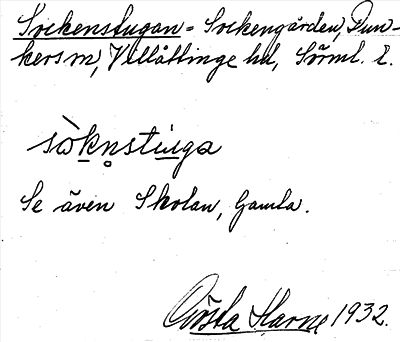 Sockenstugan = Sockengården, Dun-
kers sn, Villåttinge hd, Sörml. l.
sòkn̥stùga
Se även Skolan, Gamla.
Gösta Harne 1932.